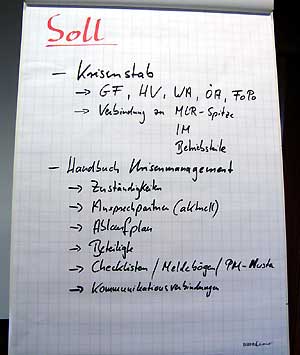 Soll
- Krisenstab
→ GF, HV, WA, ÖA, FoPo
→ Verbindung zu MLR-Spitze
IM
Betriebsteile
- Handbuch Krisenmanagement
→ Zuständigkeiten
→ Ansprechpartner (aktuell)
→ Ablaufplan
→ Beteiligte
→ Checklisten / Meldebögen / PM-Muster
→ Kommunikationsverbindungen